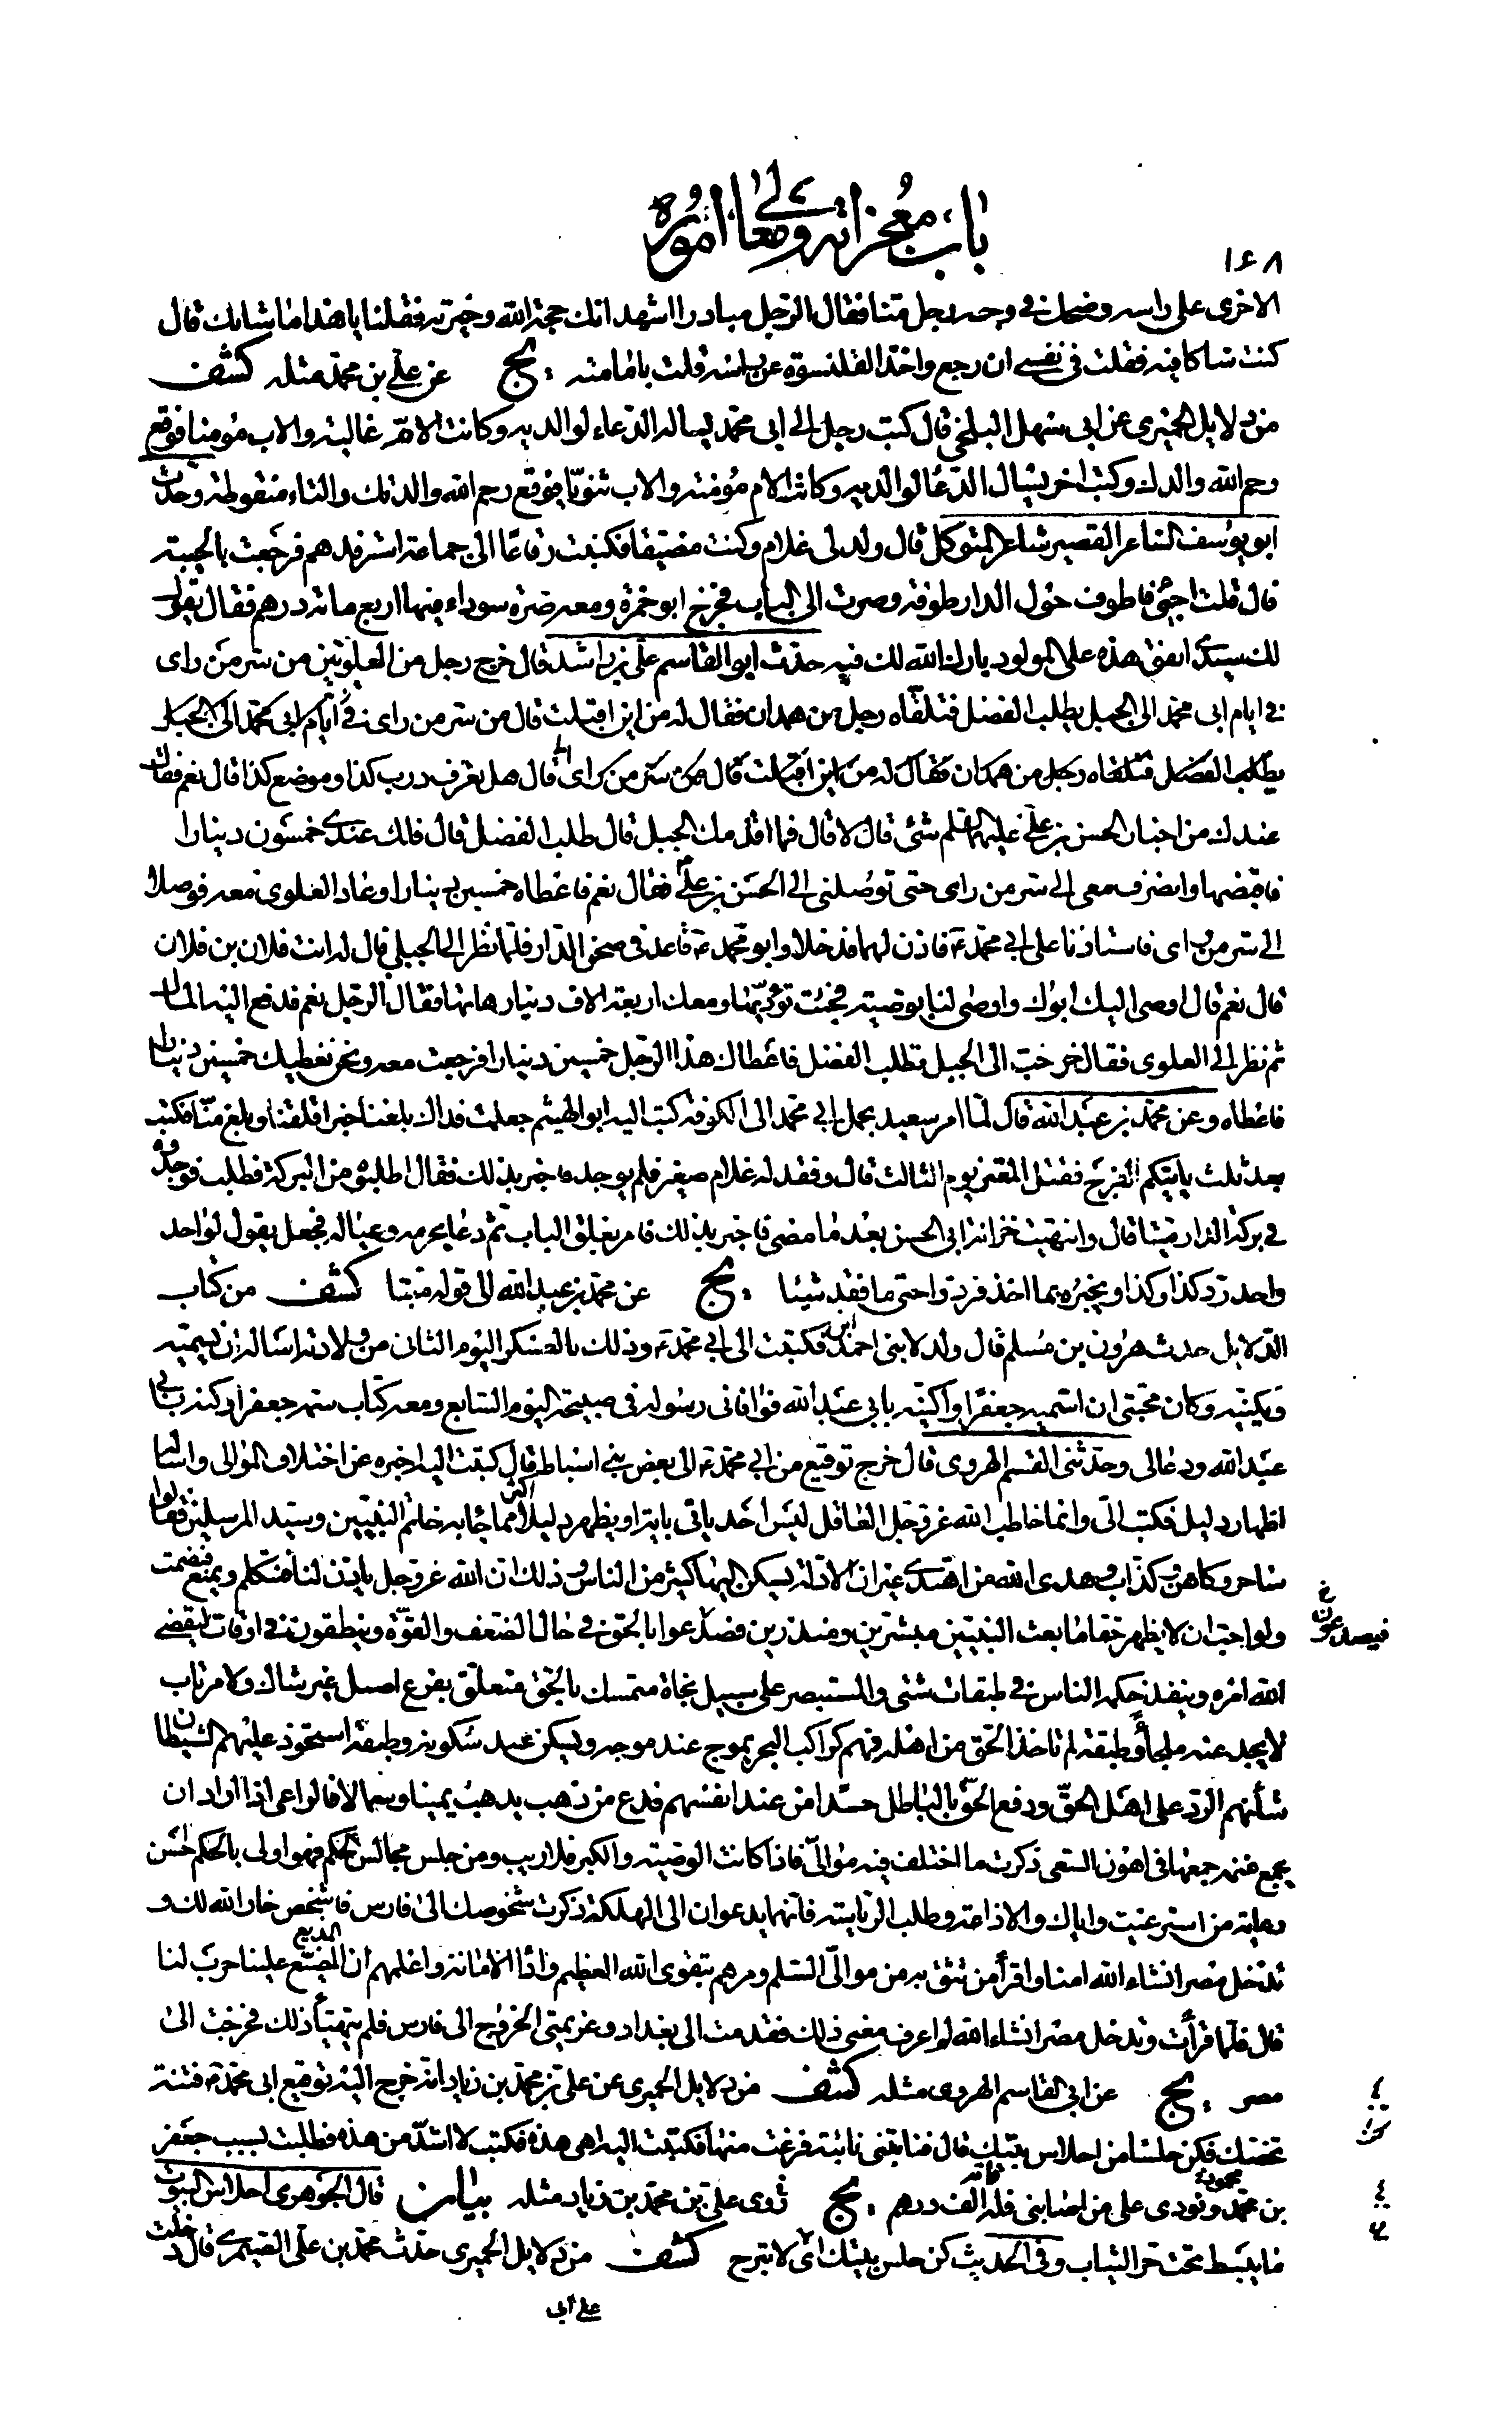 باب معجزاته ومعالي اموره
١٤٨
الاخرى على راسه وضحك في وجه رجل منا فقال الرجل مبادرا اشهد انك حجة الله وخيرته فقلنا يا هذا ما شانك قال
كنت شاكا فيه فقلت في نفسي ان رجع واخذ القلنسوة عن راسه قلت بامامته . يج عن علي بن محمد مثله كشف
من دلايل الحميري عن ابي سهل البلخي قال كتب رجل الى ابي محمد يساله الدعاء لوالديه وكانت الام غالية والاب مؤمنا فوقع
رحم الله والدك وكتب اخر يسال الدعا لوالديه وكانت الام مؤمنة والاب ثنويا فوقع رحم الله والدتك والتاء منقوطة وحدث
ابو يوسف الشاعر القصير شاعر المتوكل قال ولد لي غلام وكنت مضيقا فكتبت رقاعا الى جماعة استرفدهم فرجعت بالخيبة
قال قلت اجئ فاطوف حول الدار طوفة وصرت الى الباب فخرج ابو حمزة ومعه صرة سوداء فيها اربع مائة درهم فقال يقول
لك سيدي انفق هذه على المولود بارك الله لك فيه حدث ابو القاسم علي بن راشد قال خرج رجل من العلويين من سر من راى
في ايام ابي محمد الى الجبل يطلب الفضل فتلقاه رجل من همدان فقال له من اين اقبلت قال من سر من راى في ايام ابي محمد الى الجبل
يطلب الفضل فتلقاه رجل من همدان فقال له من اين اقبلت قال من سر من راى قال هل تعرف درب كذا وموضع كذا قال نعم فقال
عندك من اخبار الحسن بن علي عليهما السلم شئ قال لا قال فما اقدمك الجبل قال طلب الفضل قال فلك عندي خمسون دينارا
فاقبضها وانصرف معي الى سر من راى حتى توصلني الى الحسن بن علي فقال نعم فاعطاه خمسين دينارا وعاد العلوي معه فوصلا
الى سر من راى فاستاذنا على ابي محمد ع فاذن لهما فدخلا وابو محمد ع قاعد في صحن الدار فلما نظر الى الجبلي قال له انت فلان بن فلان
قال نعم قال اوصى اليك ابوك واوصى لنا بوصية فجئت تؤديها ومعك اربعة الاف دينار هاتها فقال الرجل نعم فدفع اليه المال
ثم نظر الى العلوي فقال خرجت الى الجبل تطلب الفضل فاعطاك هذا الرجل خمسين دينارا فرجعت معه ونحن نعطيك خمسين دينارا
فاعطاه وعن محمد بن عبد الله قال لما امر سعيد بحمل ابي محمد الى الكوفة كتب اليه ابو الهيثم جعلت فداك بلغنا خبر اقلقنا وبلغ منا فكتب
بعد ثلث ياتيكم الفرج فقتل المعتز يوم الثالث قال وفقد له غلام صغير فلم يوجد فاخبر بذلك فقال اطلبوه من البركة فطلب فوجدوه
في بركة الدار ميتا قال وانتهبت خزانة ابي الحسن بعد ما مضى فاخبر بذلك فامر بغلق الباب ثم دعا بحرمه وعياله فجعل يقول لواحد
واحد رد كذا وكذا ويخبره بما اخذ فردوا حتى ما فقد شيئا . يج عن محمد بن عبد الله الى قوله ميتا كشف من كتاب
الدلايل حدث هرون بن مسلم قال ولد لابني احمد ابن فكتبت الى ابي محمد ع وذلك بالعسكر اليوم الثاني من ولادته اساله ان يسميه
ويكنيه وكان محبتي ان اسميه جعفرا واكنيه بابي عبد الله فوافاني رسوله في صبيحة اليوم السابع ومعه كتاب سمه جعفرا وكنه بابي
عبد الله ودعا لي وحدثني القسم الهروي قال خرج توقيع من ابي محمد ع الى بعض بني اسباط قال كتبت اليه اخبره عن اختلاف الموالي واساله
اظهار دليل فكتب الي وانما خاطب الله عز وجل العاقل ليس احد ياتي باية او يظهر دليلا اكثر مما جاء به خاتم النبيين وسيد المرسلين فقالوا
ساحر وكاهن وكذاب وهدى الله من اهتدى غير ان الادلة يسكن اليها كثير من الناس وذلك ان الله عز وجل ياذن لنا فنتكلم ويمنع فنصمت
ولو احب ان لا يظهر حقا ما بعث النبيين مبشرين ومنذرين فصدعوا بالحق في حال الضعف والقوة وينطقون في اوقات ليقضي
الله امره وينفذ حكمه الناس في طبقات شتى والمستبصر على سبيل نجاة متمسك بالحق متعلق بفرع اصيل غير شاك ولا مرتاب
لا يجد عنه ملجأ وطبقة لم تاخذ الحق من اهله فهم كراكب البحر يموج عند موجه ويسكن عند سكونه وطبقة استحوذ عليهم الشيطان
شأنهم الرد على اهل الحق ودفع الحق بالباطل حسدا من عند انفسهم فدع من ذهب يذهب يمينا وشمالا فالراعي اذا اراد ان
يجمع غنمه جمعها في اهون السعي ذكرت ما اختلف فيه موالي فاذا كانت الوصية والكبر فلا ريب ومن جلس مجالس الحكم فهو اولى بالحكم احسن
رعاية من استرعيت واياك والاذاعة وطلب الرياسة فانهما يدعوان الى الهلكة ذكرت شخوصك الى فارس فاشخص خار الله لك و
تدخل مصر انشاء الله امنا واقرأ من تثق به من موالي السلم ومرهم بتقوى الله العظيم واداء الامانة واعلمهم ان المذيع علينا حرب لنا
قال فلما قرأت وتدخل مصر انشاء الله لم اعرف معنى ذلك فقدمت الى بغداد وعزيمتي الخروج الى فارس فلم يتهيأ ذلك فخرجت الى
مصر . يج عن ابي القاسم الهروي مثله كشف من دلايل الحميري عن علي بن محمد بن زياد انه خرج اليه توقيع ابي محمد ع فتنة
تخصك فكن حلسا من احلاس بيتك قال فنابتني نائبة فزعت منها فكتبت اليه اهي هذه فكتب لا اشد من هذه فطلبت بسبب جعفر
بن محمد ونودي علي من اصابني فله الف درهم . يج روى علي بن محمد بن زياد مثله بيان قال الجوهري احلاس البيوت
ما يبسط تحت حر الثياب وفي الحديث كن حلس بيتك اي لا تبرح كشف من دلايل الحميري حدث محمد بن علي الصيمري قال دخلت
على ابي